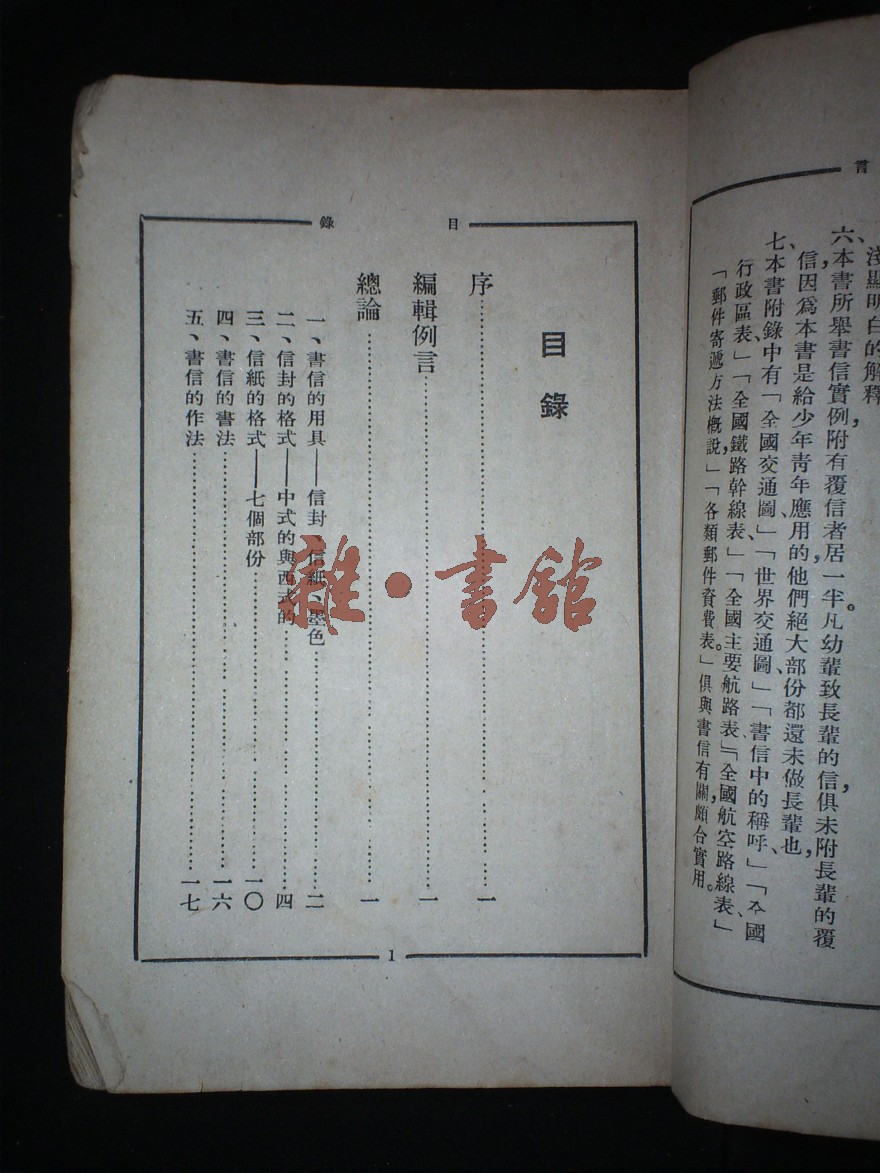 言
淺顯明白的解釋
六、本書所舉書信實例，附有覆信者居一半。凡幼輩致長輩的信，俱未附長輩的覆
信，因爲本書是給少年、青年應用的，他們絕大部份都還未做長輩也。
七、本書附錄中有「全國交通圖」、「世界交通圖」、「書信中的稱呼」、「全國
行政區表」、「全國鐵路幹線表」、「全國主要航路表」、「全國航空路線表」、
「郵件寄遞方法概說」、「各類郵件資費表」。俱與書信有關，頗合實用。
目錄
目錄
序……一
編輯例言……一
總論……一
一、書信的用具——信封、信紙、墨色……二
二、信封的格式——中式的與西式的……四
三、信紙的格式——七個部份……一〇
四、書信的書法……一六
五、書信的作法……一七
1
雜·書館